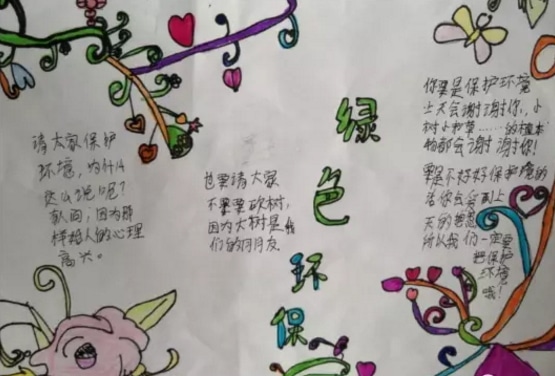 请大家保护
环境,为什么
这么说呢?
因为那
样给人的心理
高兴。
也要请大家
不要要砍树,
因为大树是我
们的好朋友
绿
色
环
保
你要是保护环境
上天会谢谢你,小
树小草……的植木
物都会谢谢你!
要是不好好保护境的
话你会受到上
天的惩
所以我们一定要
把保护
环境
哦!